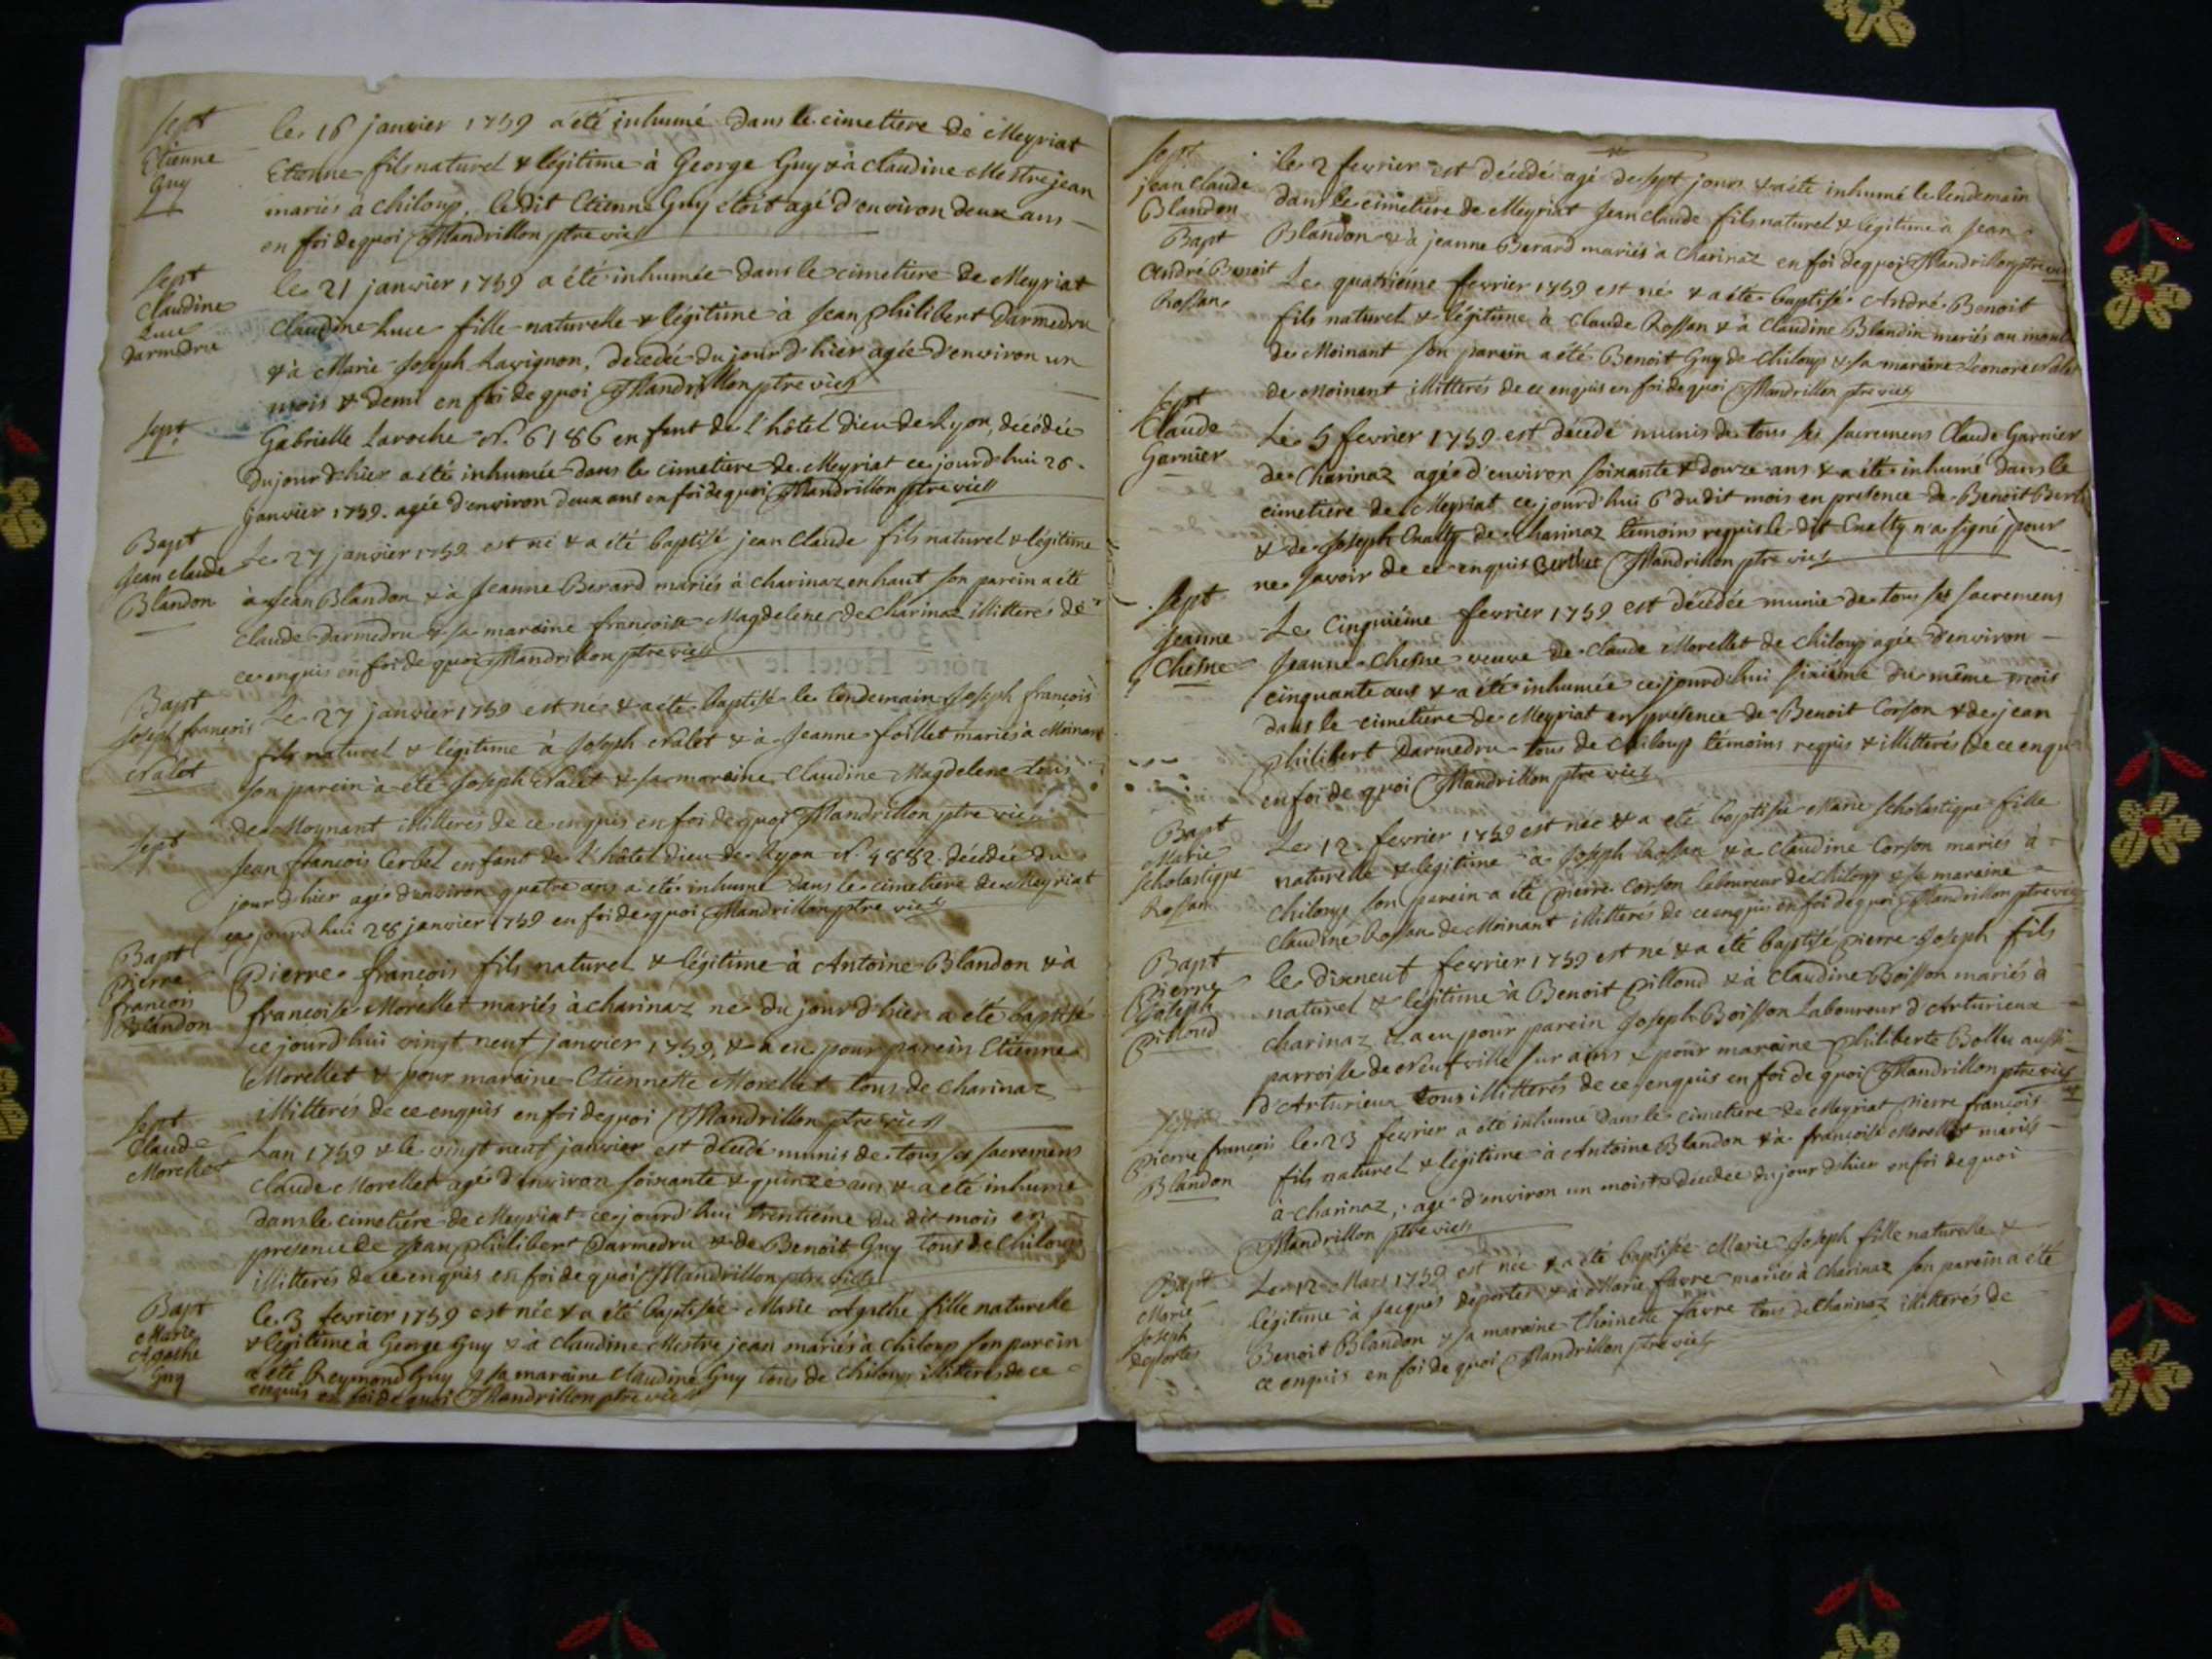 Sept
Etienne
Guy
le 16 janvier 1759 a été inhumé dans le cimetiere de Meyriat
Etienne fils naturel & légitime à George Guy & à Claudine Mestrejean
mariés à chiloup, le dit Etienne Guy étoit agé d'environ deux ans
en foi de quoi Mandrillon ptre vic
Sept
Claudine
Luce
Darmedru
le 21 janvier 1759 a été inhumée dans le cimetiere de Meyriat
Claudine Luce fille naturelle & légitime à Jean Philibert Darmedru
& à Marie Joseph Lavignon, decedée du jour d'hier agée d'environ un
mois & demi en foi de quoi Mandrillon ptre vic
Sept
Gabrielle Laroche N. 6186 enfant de l'hôtel Dieu de Lyon, décédée
du jour d'hier a été inhumée dans le cimetiere de Meyriat ce jourd'hui 26
janvier 1759. agée d'environ deux ans en foi de quoi Mandrillon ptre vic
Bapt
Jean Claude
Blandon
Le 27 janvier 1759 est né & a été baptisé jean Claude fils naturel & légitime
à Jean Blandon & à Jeanne Berard mariés à charinaz en haut son parein a été
Claude Darmedru & sa maraine françoise Magdelene de Charinaz illitterés de
ce enquis en foi de quoi Mandrillon ptre vic
Bapt
Joseph françois
Nalet
Le 27 janvier 1759 est né & a été baptisé le lendemain Joseph françois
fils naturel & légitime à Joseph Nalet & à Jeanne foillet mariés à Moinant
son parein a été Joseph Nalet & sa maraine Claudine Magdelene tous
de Moynant illitterés de ce enquis en foi de quoi Mandrillon ptre vic
Sept
Jean françois Cerbel enfant de l'hôtel Dieu de Lyon N. 4882 décédée du
jour d'hier agé d'environ quatre ans a été inhumé dans le cimetiere de Meyriat
ce jourd'hui 28 janvier 1759 en foi de quoi Mandrillon ptre vic
Bapt
Pierre
françois
Blandon
Pierre françois fils naturel & légitime à Antoine Blandon & à
françoise Morellet mariés à charinaz né du jour d'hier a été baptisé
ce jourd'hui vingt neuf janvier 1759, & a eu pour parein Etienne
Morellet & pour maraine Etiennette Morellet tous de Charinaz
illitterés de ce enquis en foi de quoi Mandrillon ptre vic
Sept
Claude
Morellet
Lan 1759 & le vingt neuf janvier est décédé munis de tous ses sacremens
Claude Morellet agé d'environ soixante & quinze ans & a été inhumé
dans le cimetiere de Meyriat ce jourd'hui trentieme du dit mois en
presence de Jean Philibert Darmedru & de Benoit Guy tous de Chiloup
illitterés de ce enquis en foi de quoi Mandrillon ptre vic
Bapt
Marie
Agathe
Guy
le 3 fevrier 1759 est née & a été baptisée Marie Agathe fille naturelle
& légitime à George Guy & à Claudine Mestrejean mariés à Chiloup son parein
a été Reymond Guy & sa maraine Claudine Guy tous de Chiloup illitterés de ce
enquis en foi de quoi Mandrillon ptre vic
Sept
jean Claude
Blandon
le 2 fevrier est décédé agé de sept jours & a été inhumé le lendemain
dans le cimetiere de Meyriat Jean Claude fils naturel & légitime à Jean
Blandon & à jeanne Berard mariés à charinaz en foi de quoi Mandrillon ptre vic
Bapt
André Benoit
Rossan
Le quatrième fevrier 1759 est né & a été baptisé André Benoit
fils naturel & légitime à Claude Rossan & à Claudine Blandin mariés au mont
de Moinant son parein a été Benoit Guy de Chiloup & sa maraine Leonore Nalet
de Moinant illitterés de ce enquis en foi de quoi Mandrillon ptre vic
Sept
Claude
Garnier
Le 5 fevrier 1759 est décédé munis de tous ses sacremens Claude Garnier
de Charinaz agée d'environ soixante & douze ans & a été inhumé dans le
cimetiere de Meyriat ce jourd'hui 6 du dit mois en presence de Benoit
& de Joseph de Charinaz temoins requis le dit n'a signé pour
ne savoir de ce enquis Berthet Mandrillon ptre vic
Sept
Jeanne
Chesne
Le Cinquième fevrier 1759 est décédée munie de tous ses sacremens
Jeanne Chesne veuve de Claude Morellet de Chiloup agée d'environ
cinquante ans & a été inhumée ce jourd'hui sixième du même mois
dans le cimetiere de Meyriat en presence de Benoit Corson & de jean
philibert Darmedru tous de Chiloup témoins requis & illitterés de ce enqu
en foi de quoi Mandrillon ptre vic
Bapt
Marie
Scholastique
Rossan
Le 12 fevrier 1759 est née & a été baptisée Marie Scholastique fille
naturelle & légitime à Joseph Rossan & à Claudine Corson mariés à
Chiloup son parein a été pierre Corson laboureur de Chiloup & sa maraine
Claudine Rossan de Moinant illitterés de ce enquis en foi de quoi Mandrillon ptre vic
Bapt
Pierre
Joseph
Pilloud
le dixneuf fevrier 1759 est né & a été baptisé pierre Joseph fils
naturel & légitime à Benoit Pilloud & à Claudine Boisson mariés à
charinaz il a eu pour parein Joseph Boisson Laboureur d'Arturieux
parroisse de Neufville sur ains & pour maraine Philiberte Bollu aussi
d'Arturieux tous illitterés de ce enquis en foi de quoi Mandrillon ptre vic
Sept
Pierre françois
Blandon
le 23 fevrier a été inhumé dans le cimetiere de Meyriat pierre françois
fils naturel & légitime à Antoine Blandon & à françoise Morellet mariés
à charinaz, agé d'environ un mois & décédée du jour d'hier en foi de quoi
Mandrillon ptre vic
Bapt
Marie
Joseph
Deportes
Le 12 Mars 1759 est née & a été baptisée Marie Joseph fille naturelle &
légitime à Jacques Deportes & à Marie favre mariés à Charinaz son parein a été
Benoit Blandon & sa maraine Thoinette favre tous de Charinaz illitterés de
ce enquis en foi de quoi Mandrillon ptre vic